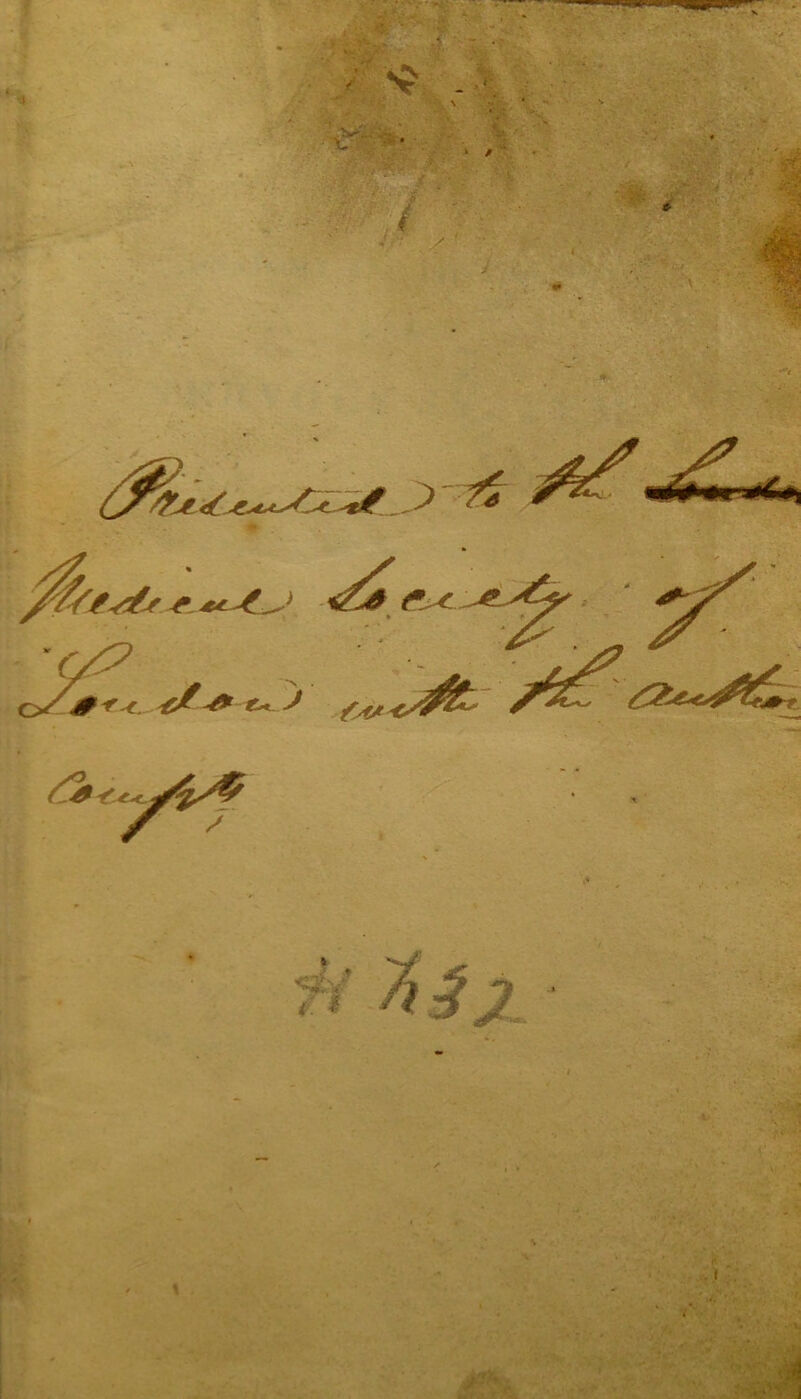 Presented to the
Medical Society of
London with the author
Compts